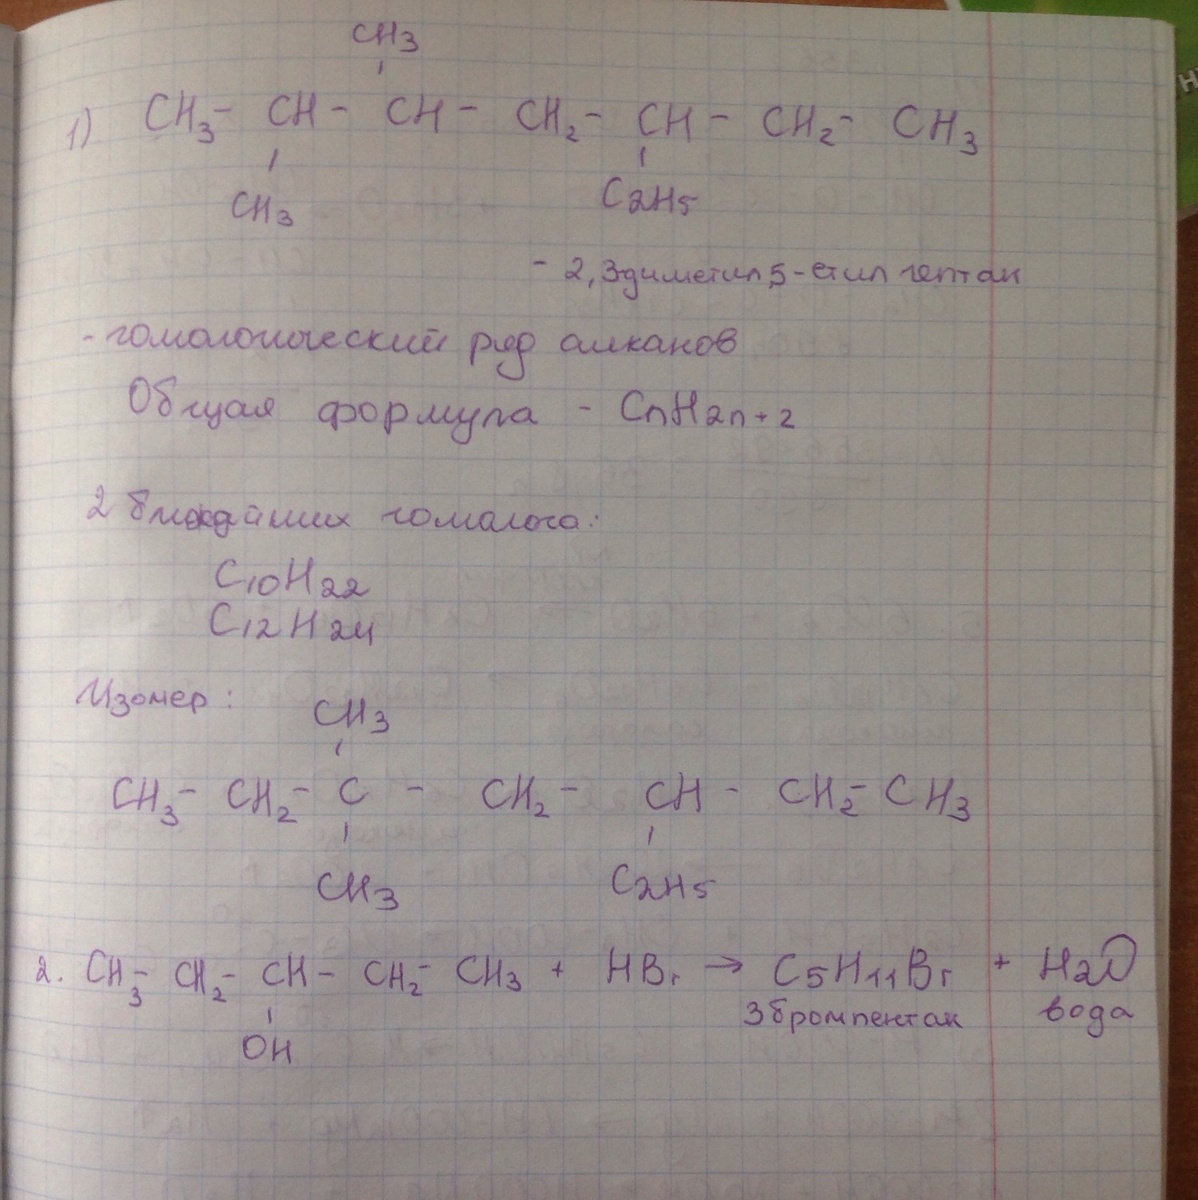 CH3
1) CH3- CH- CH- CH2- CH- CH2- CH3
CH3 C2H5
- 2,3диметил,5-етил гептан
-гомологический ряд алканов
Общая формула - CnH2n+2
2 ближайших гомалога:
C10H22
C12H24
Изомер:
CH3
CH3- CH2- C - CH2- CH- CH2- CH3
CH3 C2H5
2. CH3- CH2- CH- CH2- CH3 + HBr → C5H11Br + H2O
3бромпентан вода
OH